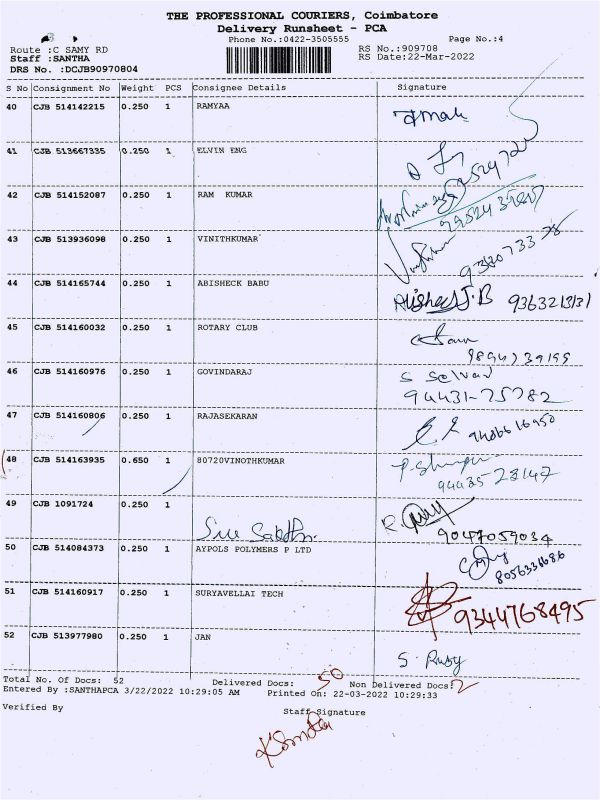 THE PROFESSIONAL COURIERS, Coimbatore
Delivery Runsheet - PCA
Phone No.:0422-3505555 Page No.:4
Route :C SAMY RD RS No.:909708
Staff :SANTHA RS Date:22-Mar-2022
DRS No. :DCJB90970804
S No Consignment No Weight PCS Consignee Details Signature
40 CJB 514142215 0.250 1 RAMYAA
41 CJB 513667335 0.250 1 ELVIN ENG
42 CJB 514152087 0.250 1 RAM KUMAR
43 CJB 513936098 0.250 1 VINITHKUMAR
44 CJB 514165744 0.250 1 ABISHECK BABU J.B 9363213131
45 CJB 514160032 0.250 1 ROTARY CLUB
46 CJB 514160976 0.250 1 GOVINDARAJ S Selvan
94431-75782
47 CJB 514160806 0.250 1 RAJASEKARAN 9486616950
48 CJB 514163935 0.650 1 80720VINOTHKUMAR
94435-23147
49 CJB 1091724 0.250 1 R.
9047059034
50 CJB 514084373 0.250 1 AYPOLS POLYMERS P LTD
8056331686
51 CJB 514160917 0.250 1 SURYAVELLAI TECH 9344768495
52 CJB 513977980 0.250 1 JAN
S. Rusy
Total No. Of Docs: 52 Delivered Docs: 50 Non Delivered Docs: 2
Entered By :SANTHAPCA 3/22/2022 10:29:05 AM Printed On: 22-03-2022 10:29:33
Verified By Staff Signature